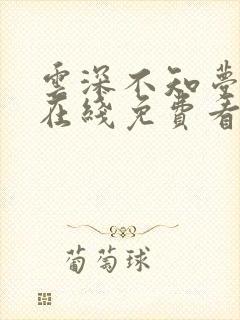 雲深不知夢
在綫免費看
葡萄球